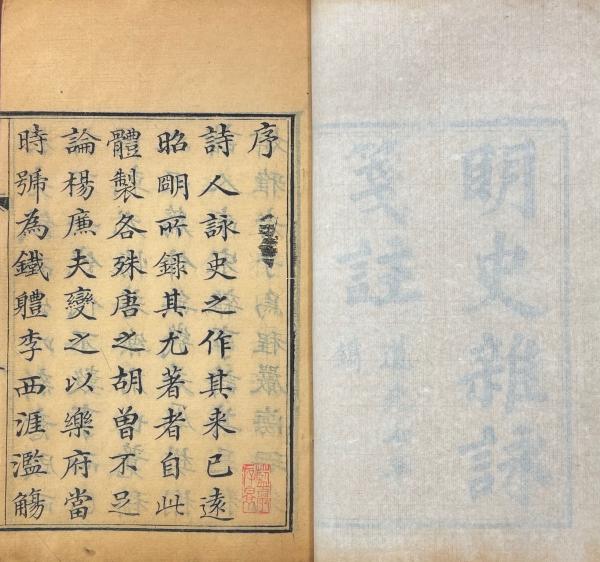 明史雜詠
箋註
序
詩人詠史之作其来已遠
昭明所録其尤著者自此
體製各殊唐之胡曾不足
論楊廉夫變之以樂府當
時號為鐵體李西涯濫觴